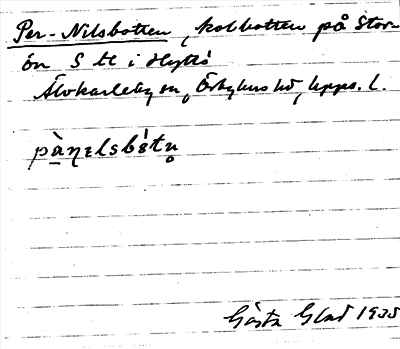 Per-Nilsbotten, kolbotten på Stor-
ön S te i Hyttö
Älvkarleby sn, Örbyhus hd, Upps. l.
pànɛlsbót
Gösta Glad 1935